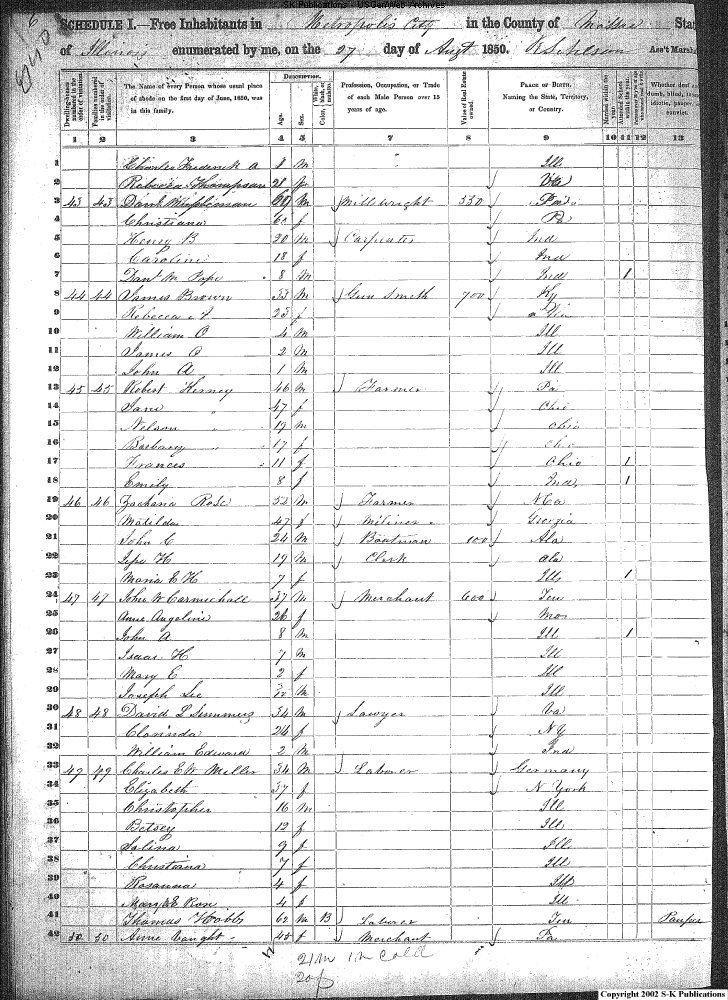 S-K Publications - USGenWeb Archives
SCHEDULE I.—Free Inhabitants in Metropolis City in the County of State
of Illinois enumerated by me, on the 27 day of Augt 1850. Ass't Marsh
Dwelling-houses numbered in the order of visitation.
Families numbered in the order of visitation.
The Name of every Person whose usual place of abode on the first day of June, 1850, was in this family.
DESCRIPTION.
Age.
Sex.
White, black, or mulatto.
Color
Profession, Occupation, or Trade of each Male Person over 15 years of age.
Value of Real Estate owned.
PLACE OF BIRTH.
Naming the State, Territory, or Country.
Married within the year.
Attended School within the year.
Whether deaf and dumb, blind, insane, idiotic, pauper or convict.
1 2 3 4 5 6 7 8 9 10 11 12 13
1 Charles Frederick A 8 M Ill
2 Rebecca Thompson 28 f Va
3 43 43 M Millwright 330 Pa
4 Christiana f Pa
5 Henry B 20 M Carpenter Ind
6 Caroline 18 f Ind
7 Danl M Pope 8 M Ind 1
8 44 44 James Brown 33 M Gun Smith 700 Ky
9 Rebecca A 23 f
10 William O 4 M Ill
11 James 2 M Ill
12 John A 1 M Ill
13 45 45 Robert 46 M Farmer Pa
14 Jane 47 f Ohio
15 Nelson 19 M Ohio
16 Barbary 17 f Ohio
17 Frances 11 f Ohio 1
18 Emily 8 f Ind 1
19 46 46 Zacharia Rose 52 M Farmer N Ca
20 Matilda 47 f Miliner Georgia
21 John C 24 M Boatman 100 Ala
22 H 19 M Clerk Ala
23 Maria E H 7 f Ill 1
24 47 47 John W Carmichall 37 M Merchant 600 Ten
25 Anne Angeline 26 f Mo
26 John A 8 M Ill 1
27 Isaac H 7 M Ill
28 Mary E 2 f Ill
29 Joseph Lee M Ill
30 48 48 David L Simmers 34 M Lawyer Va
31 Clarinda 24 f N Y
32 William Edward 2 M Ind
33 49 49 Charles E W Miller 34 M Laborer Germany
34 Elizabeth 37 f N York
35 Christopher 16 M Ill
36 Betsey 12 f Ill
37 Salina 9 f Ill
38 Christiana 7 f Ill
39 Rosanna 4 f Ill
40 4 f Ill
41 Thomas Hobbs 62 M B Laborer Ten Pauper
42 50 50 Anne Vaught 48 f Merchant Pa
21 m 1 m cold
20 f
Copyright 2002 S-K Publications